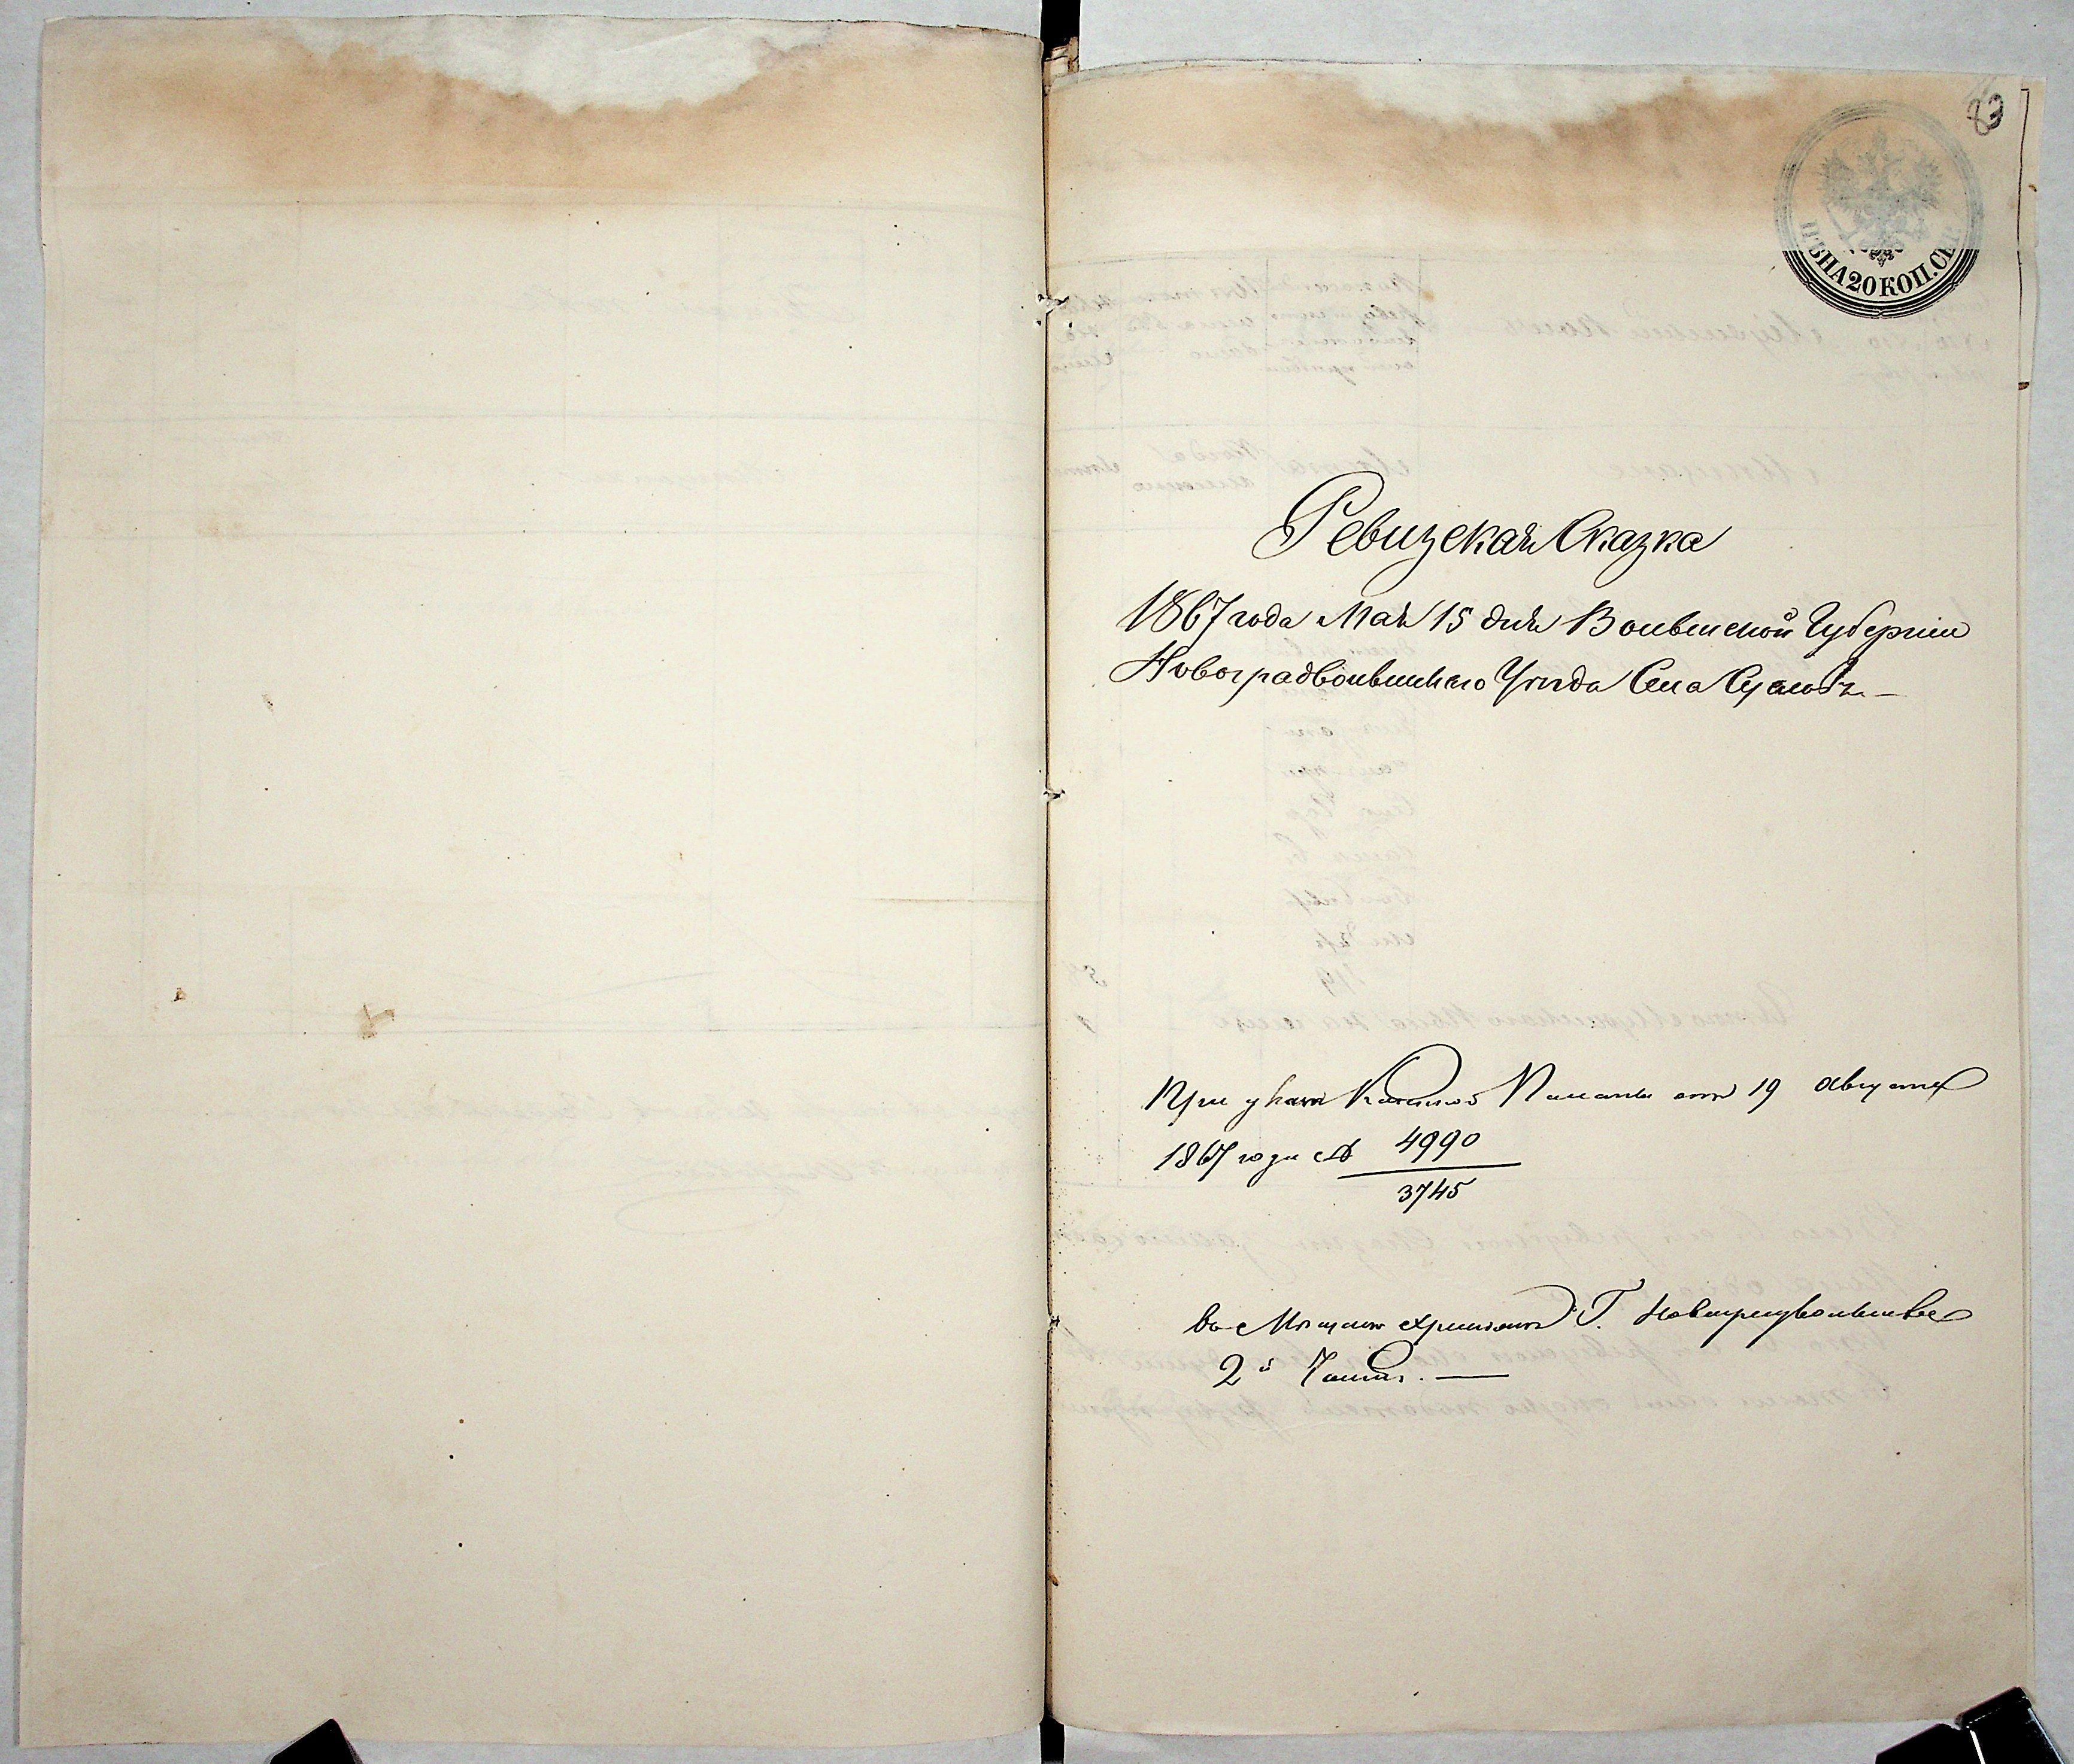 83
ЦѢНА 20 КОП. СЕР
Ревизская Сказка
1867 года Мая 15 дня Волынской Губерніи
Новоградволынскаго Уѣзда Села
При указѣ Казенной Палаты отъ 19 августа
1867 года № 4990
3745
въ Мѣщане христіане Г. Новоградволынска
2й